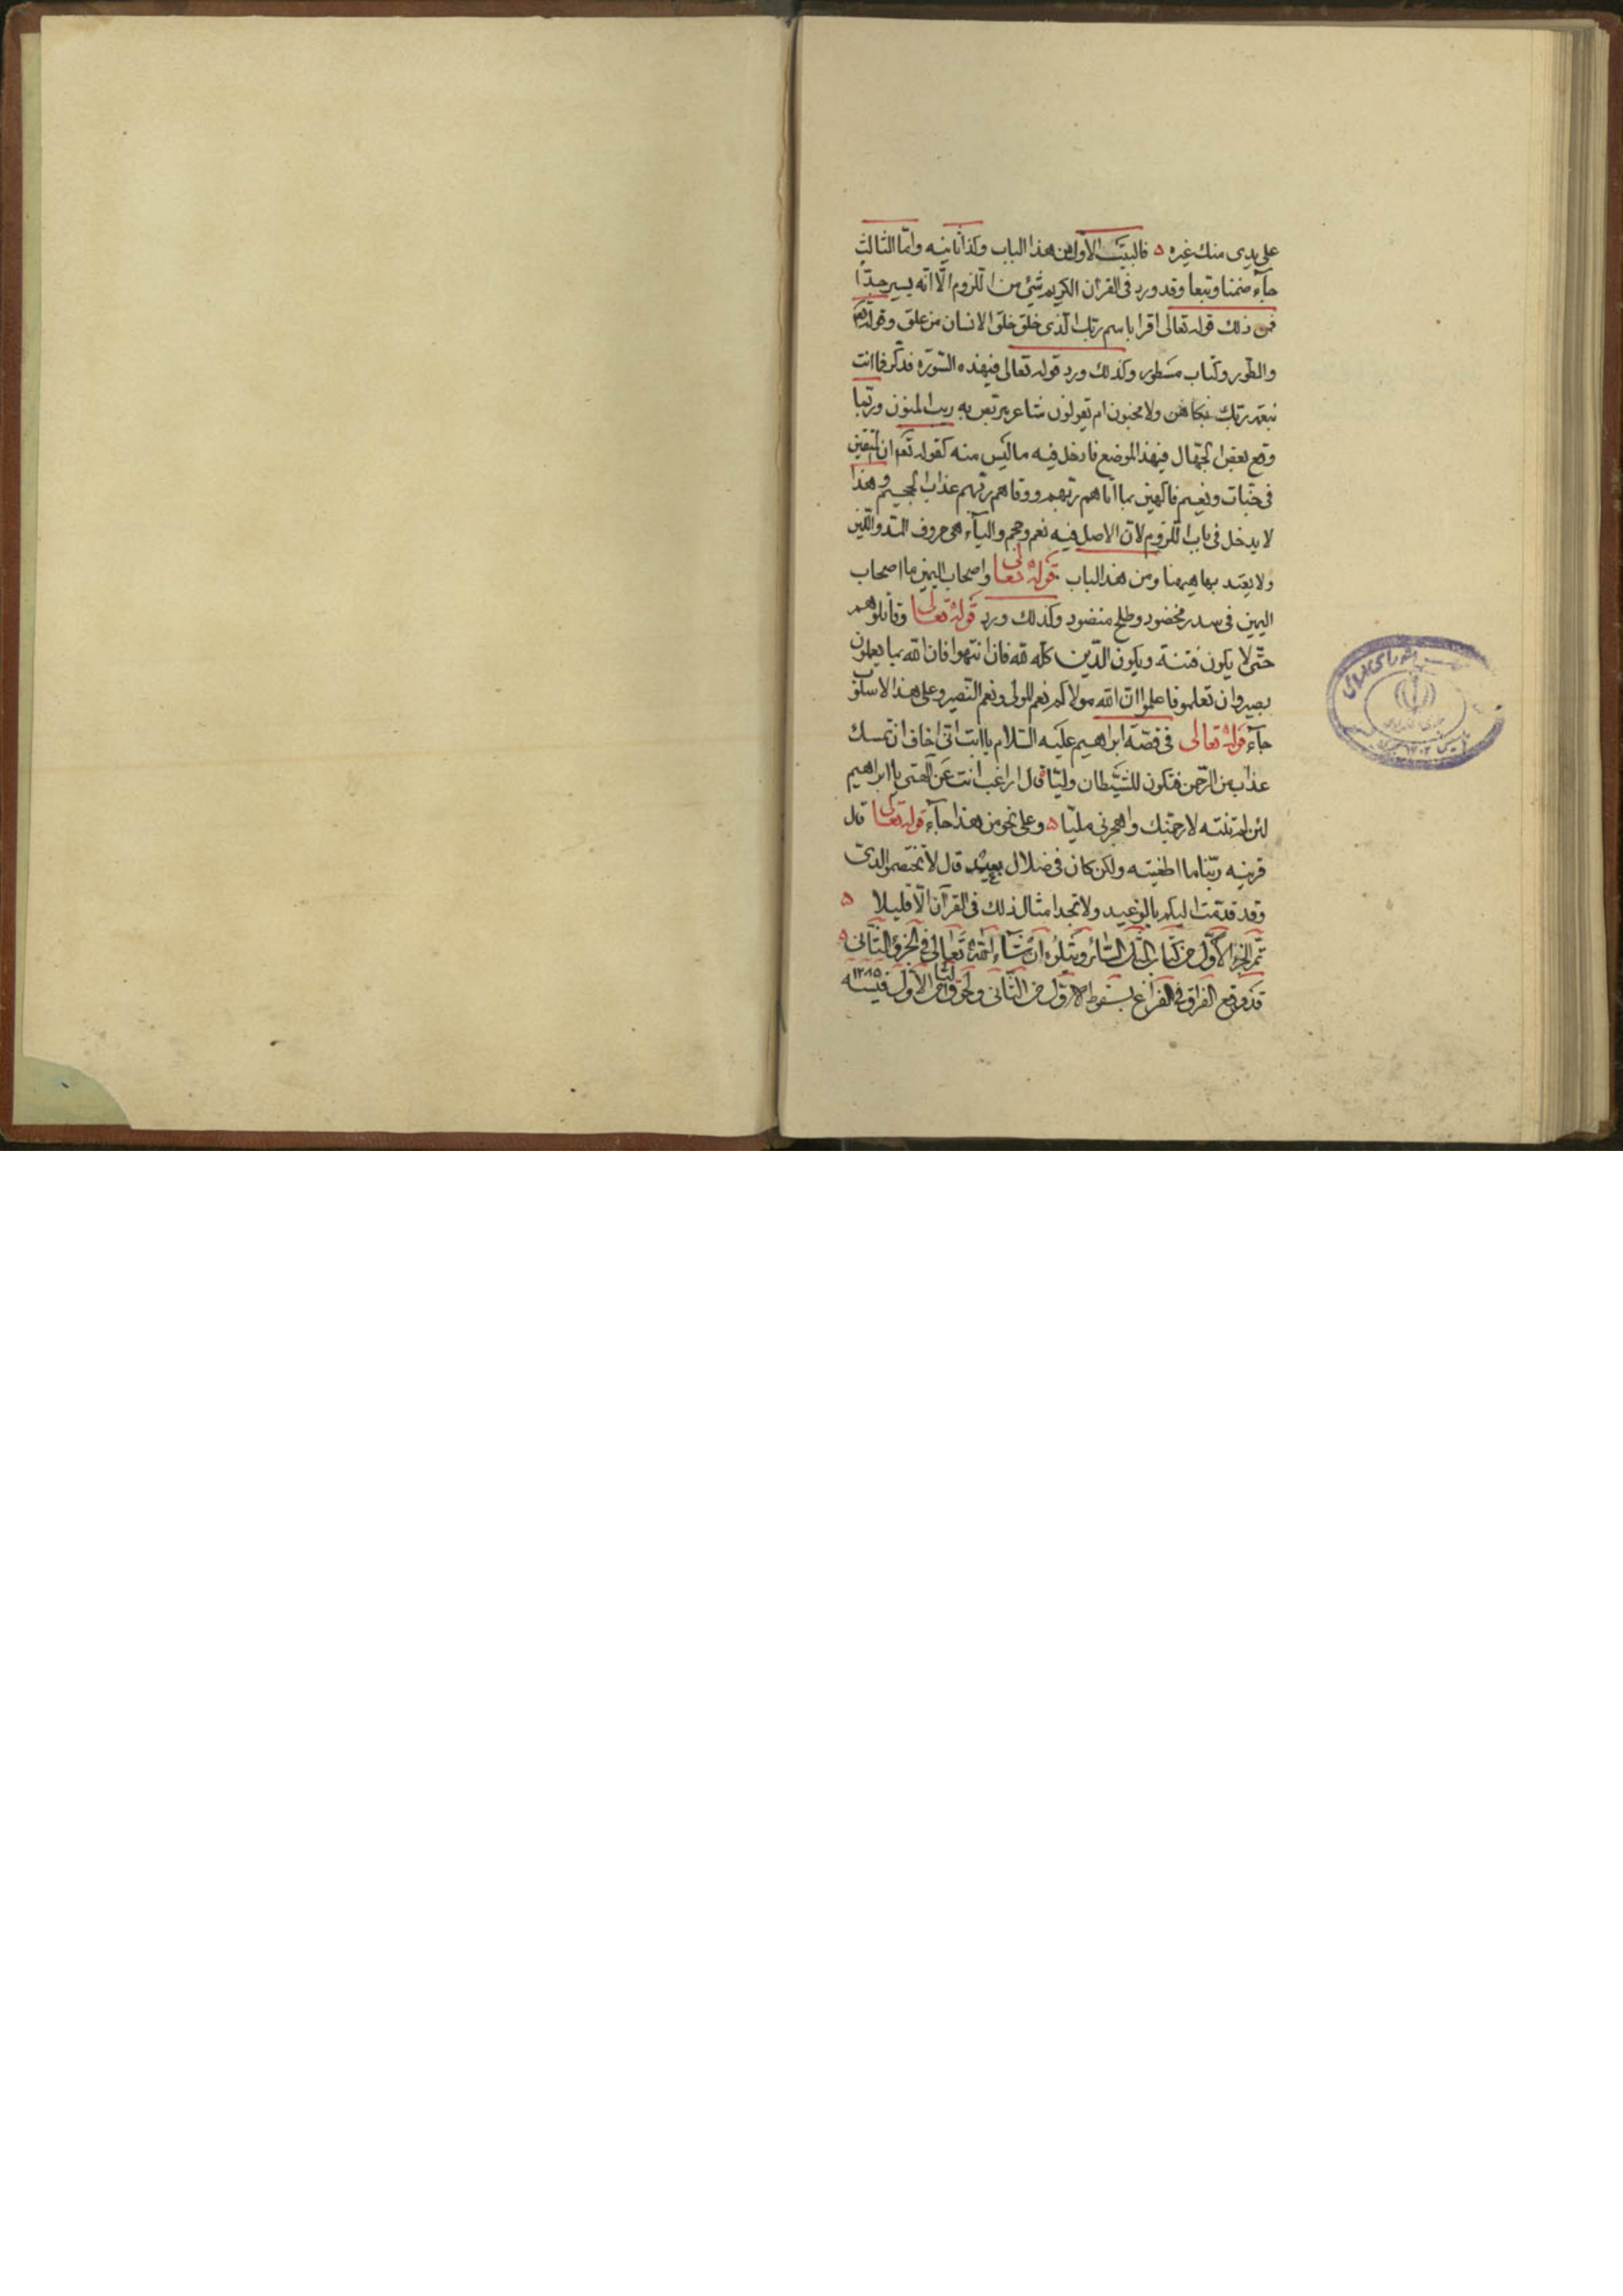 على يدى منك غيره ه فالبيت الاول من هذا الباب وكذا ثانيه وامّا الثالث
جآء ضمنا وتبعا وقد ورد فى القرآن الكريم شئ من اللزوم الّا انّه يسير جدّا
فمن ذلك قوله تعالى اقرا باسم ربّك الّذى خلق خلق الانسان من علق وقوله تعم
والطّور وكتاب مسطور وكذلك ورد قوله تعالى فيهذه السّورة فذكّر فما انت
بنعمة ربّك بكاهن ولا مجنون ام يقولون شاعر نتربّص به ريب المنون وربّما
وقع بعض الجهّال فيهذا الموضع فادخل فيه ما ليس منه كقوله تعم ان المتّقين
فى جنّات ونعيم فاكهين بما اتاهم ربّهم ووقاهم ربّهم عذاب الجحيم وهذا
لا يدخل فى باب اللزوم لانّ الاصل فيه نعم وجحم واليآء هى حروف المدّ واللّين
ولا يعتد بها هيهنا ومن هذا الباب قوله تعالى واصحاب اليمين ما اصحاب
اليمين فى سدر مخضود وطلح منضود وكذلك ورد قوله تعالى وقاتلوهم
حتّى لا يكون فتنة ويكون الدّين كلّه للّه فان انتهوا فان اللّه بما يعملون
بصير وان تعلمو فاعلموا انّ اللّه مولاكم نعم المولى ونعم النّصير وعلى هذا الاسلوب
جآء قوله تعالى فى قصّة ابراهيم عليه السّلام يا ابت انّى اخاف ان يمسك
عذاب من الرّحمن فتكون للشّيطان وليّا قال اراغب انت عن آلهتى يا ابراهيم
لئن لم تنته لارجمنّك واهجرنى مليّا ه وعلى نحو من هذا جآء قوله تعالى قال
قرينه ربّنا ما اطغيته ولكن كان فى ضلال بعيد قال لا تختصمو الدىّ
وقد قدّمت اليكم بالوعيد ولا تجد امثال ذلك فى القرآن الّا قليلا ه
تمّ الجزء الاوّل من كتاب المثل السّائر ويتلوه ان شآء اللّه تعالى فى الجزؤ الثّانى ه
قد وقع الفراق فى الفراغ بسقوط الاوّل من الثّانى ولحوق الثا من الاوّل فيسنه ١٢٨٥